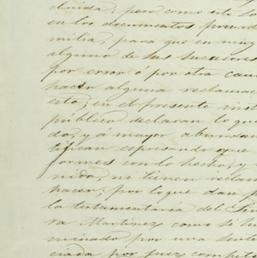 cluida; pero como esto so
en los documentos privad
milia, para que en ning
alguno de sus sucesores
por error ó por otra cau
hacer alguna reclamac
esto; en el presente inst
público declaran lo que
do, y á mayor abundam
tifican espresando que
formes con lo hecho, y
nido, no tienen reclam
hacer; por lo que dan p
la testamentaria del Sin
ra Martinez como si hu
minado por una sente
ciada por juez compete